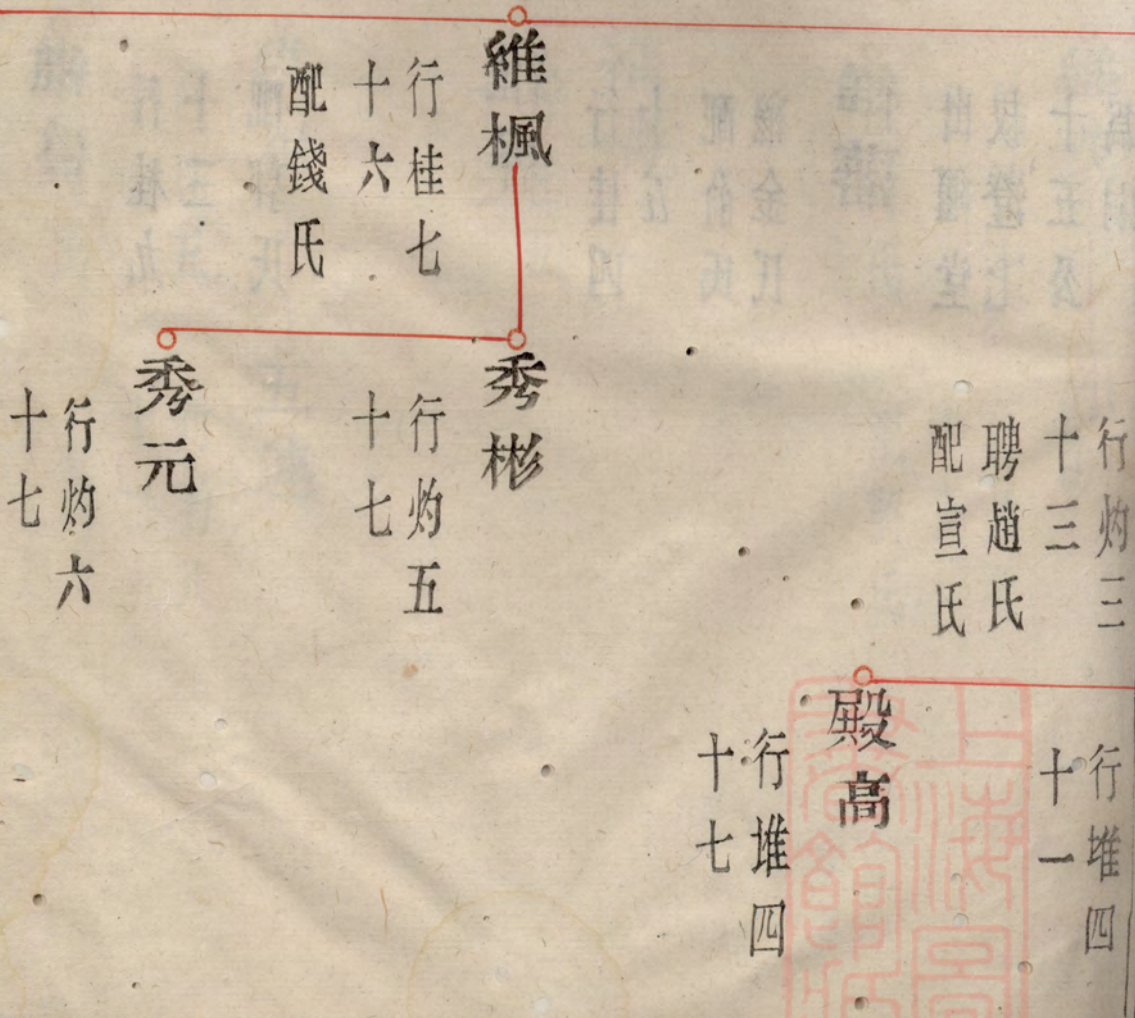 行灼三
十三
聘趙氏
配宣氏
行堆四
十一
殿高
行堆四
十七
維楓
行桂七
十六
配錢氏
秀彬
行灼五
十七
秀元
行灼六
十七
上海圖書館